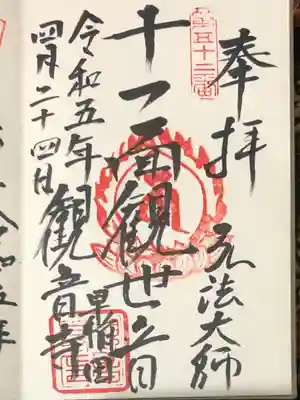 奉拝 弘法大師
第五十二番
十一面観世音
早稲田
観音寺
令和五年
四月二十四日
令和五年